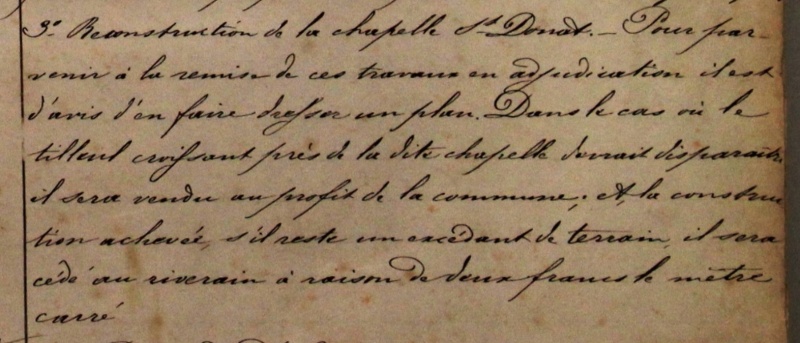 3.° Reconstruction de la chapelle St Donat. – Pour par-
venir à la remise de ces travaux en adjudication il est
d'avis d'en faire dresser un plan. Dans le cas où le
tilleul croissant près de la dite chapelle devrait disparaître
il sera vendu au profit de la commune; et, la construc
tion achevée, s'il reste un excédant de terrain, il sera
cédé au riverain à raison de deux francs le mètre
carré